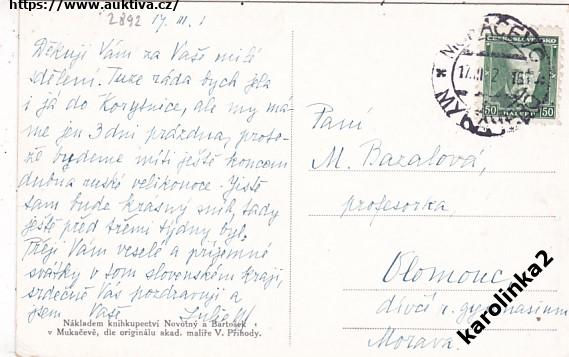 https://www.auktiva.cz/
2892 17. III. 1
Děkuji Vám za Vaše milé
sdělení. Tuze ráda bych jela
i já do Korytnice, ale my má-
me jen 3 dni prázdna, proto-
že budeme míti ještě koncem
dubna ruské velikonoce. Jistě
tam bude krásný sníh, tady
ještě před třemi týdny byl.
Přeji Vám veselé a příjemné
svátky v tom slovenském kraji,
srdečně Vás pozdravuji a
jsem Vaše
Nákladem knihkupectví Novotný a Bartošek
v Mukačevě, dle originálu akad. malíře V. Příhody.
MUKAČEVO
ČESKOSLOVENSKO
50 HALÉŘŮ 50
Paní
M. Bazalová,
profesorka,
Olomouc
dívčí r. gymnasium
Morava.
karolinka2